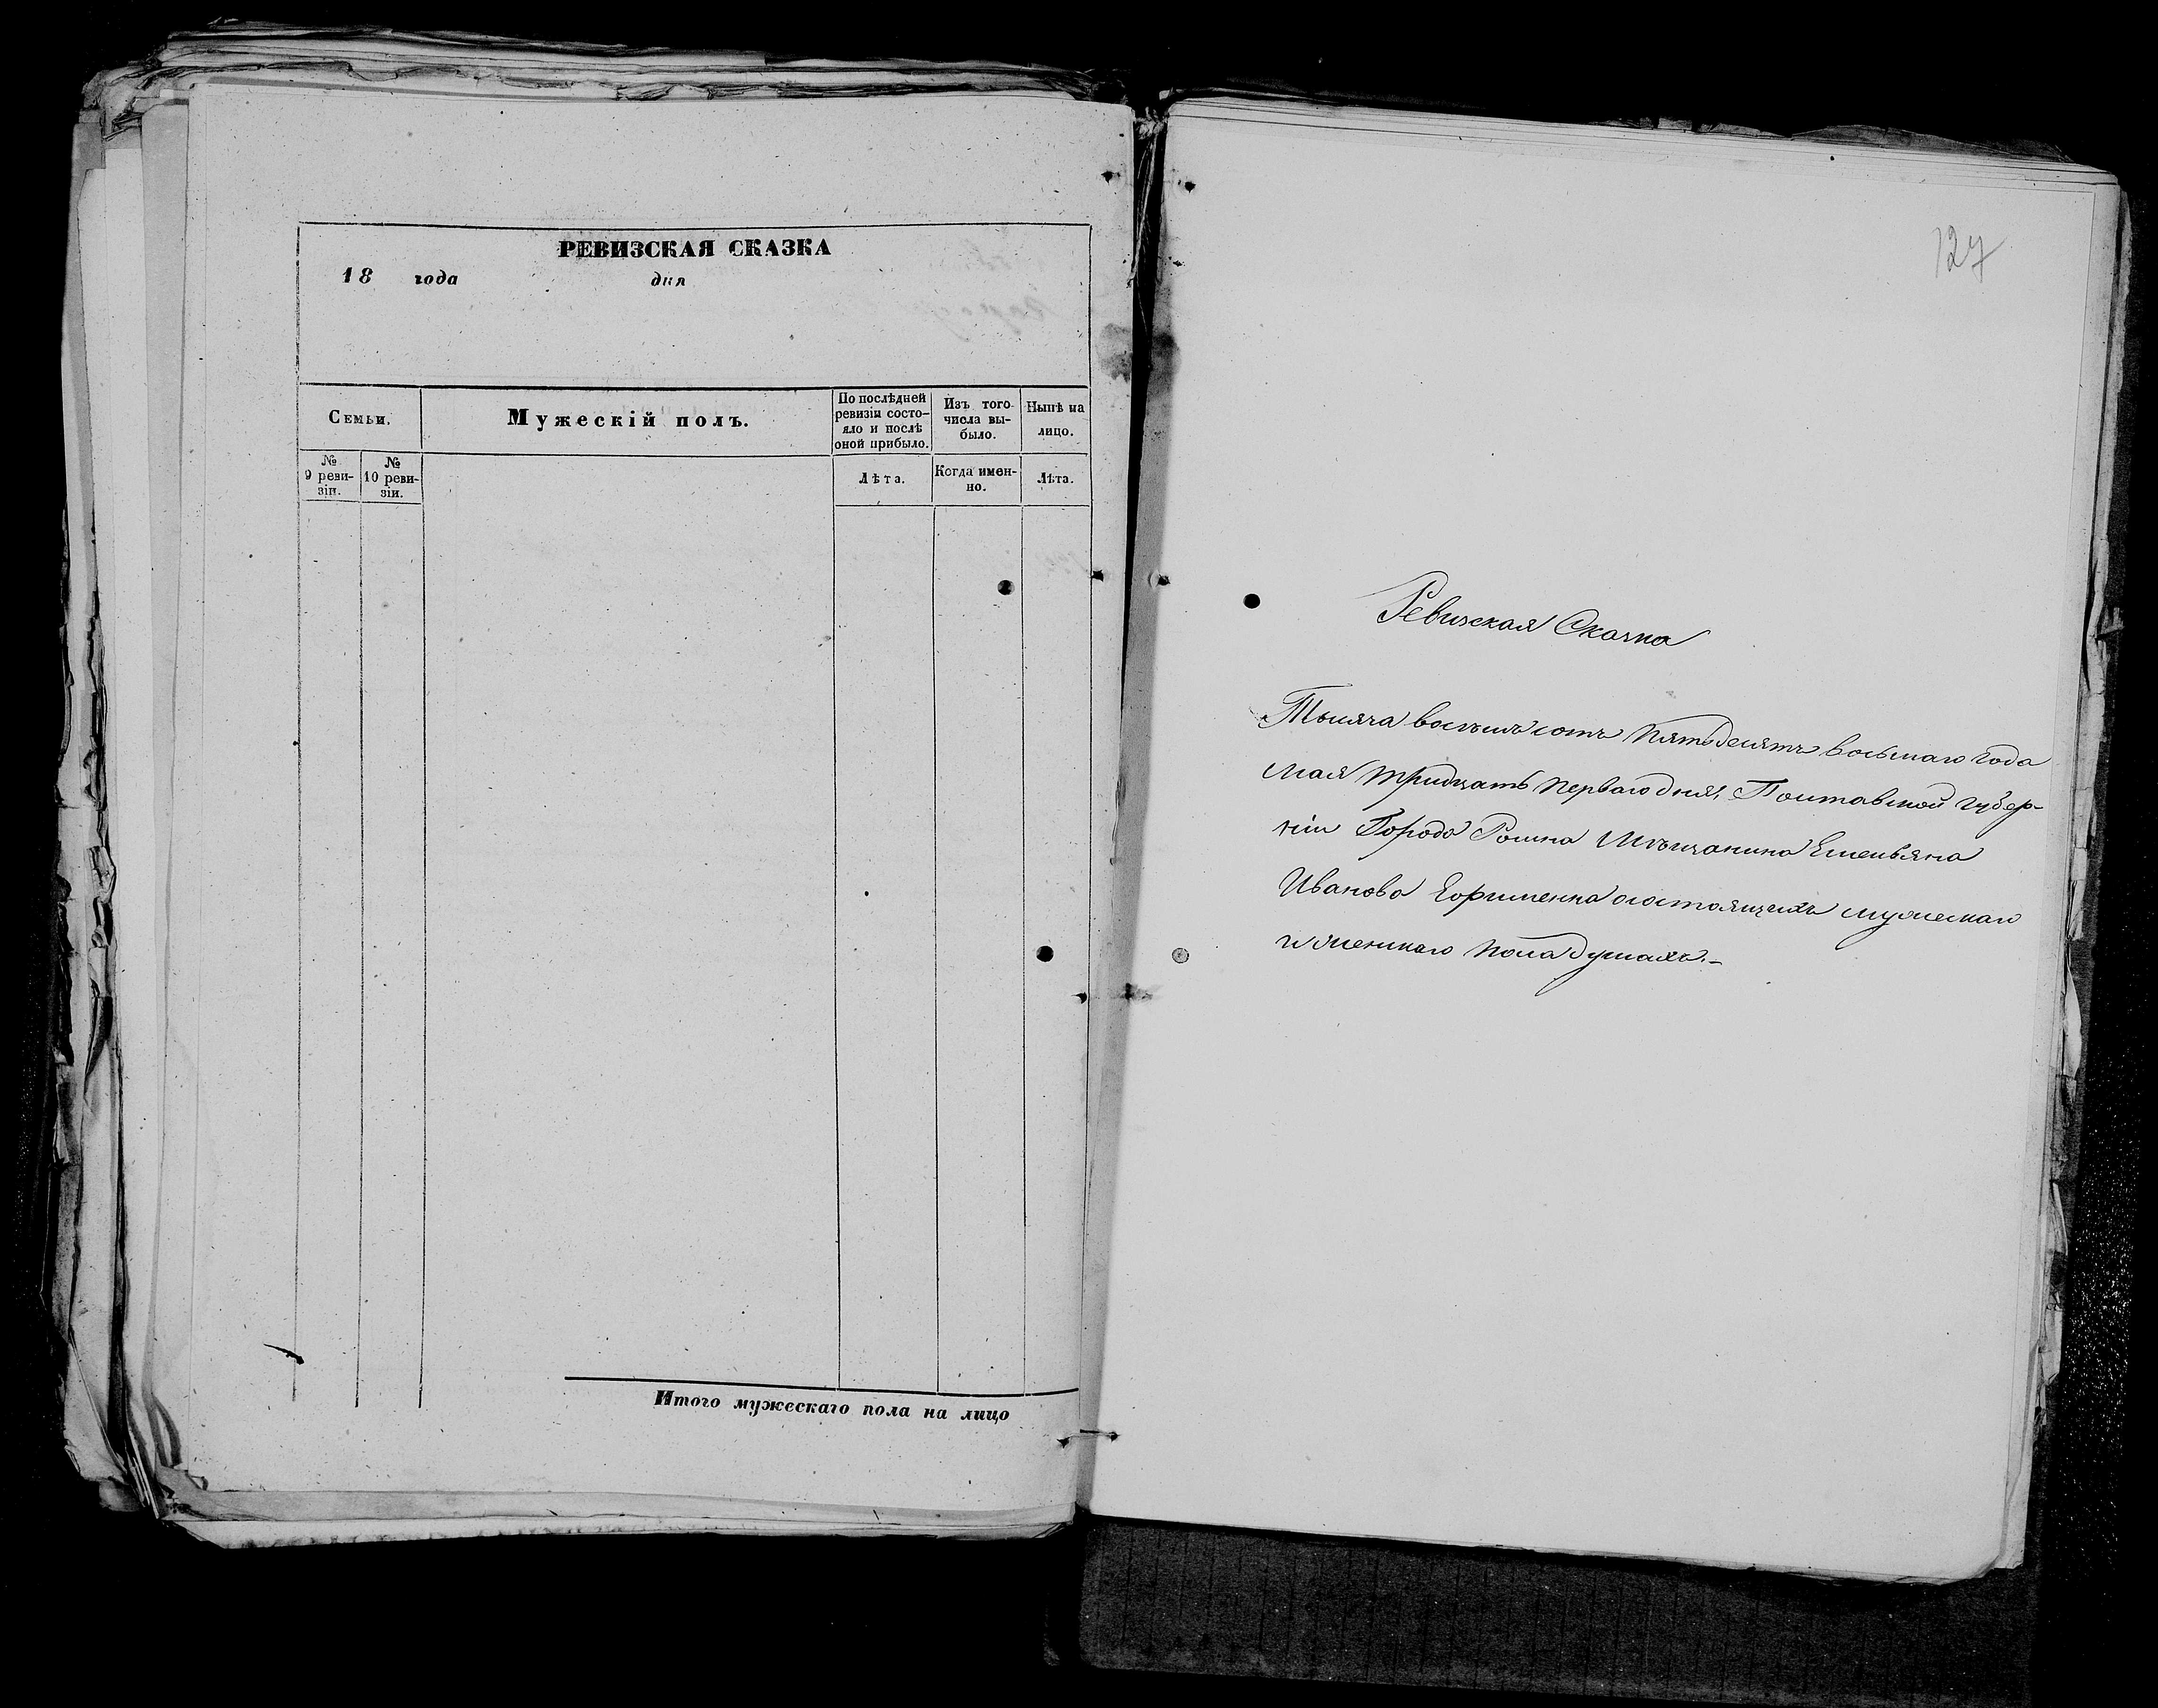 РЕВИЗСКАЯ СКАЗКА
18 года дня
Семьи.
Мужескій полъ.
По послѣдней
ревизіи состо-
яло и послѣ
оной прибыло.
Изъ того
числа вы-
было.
Нынѣ на
лицо.
№
9 реви-
зіи.
№
10 реви-
зіи.
Лѣта.
Когда имен-
но.
Лѣта.
Итого мужескаго пола на лицо
127
Ревизская Сказка
Тысяча восемьсотъ пятьдесятъ восьмаго года
мая тридцать перваго дня, Полтавской губер-
ніи Города Ромна Мѣщанина Емельяна
Иванова о состоящихъ мужескаго
и женскаго пола душахъ.-